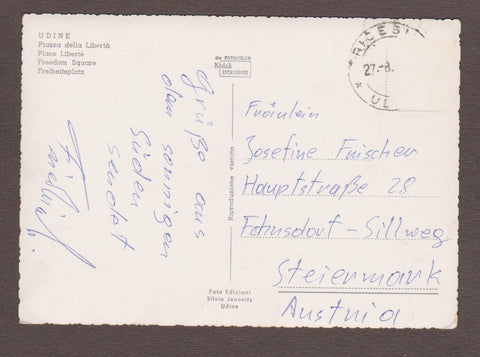 UDINE
Piazza della Libertà
Place Liberté
Freedom Square
Freiheitsplatz
da FOTOCOLOR
Kodak
EKTACHROME
27.-8.
UD
Grüße aus
dem sonnigen
Süden
sendet
Riproduzione vietata
Foto Edizioni
Silvio Janovitz
Udine
Fräulein
Josefine Frischer
Hauptstraße 28
Fohnsdorf-Sillweg
Steiermark
Austria